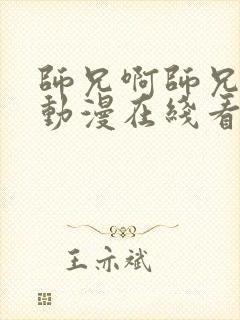 師兄啊師兄
動漫在綫看
王亦斌